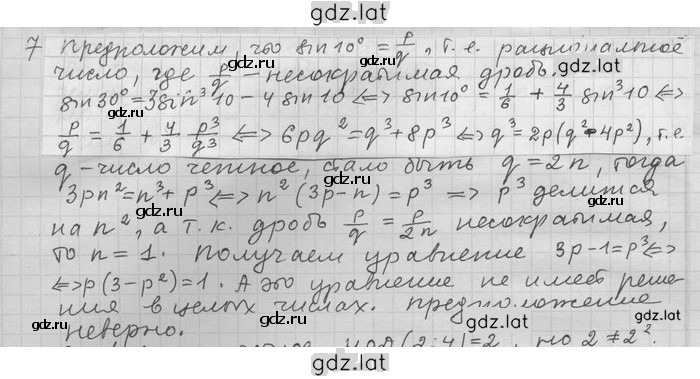 gdz.lat
7 предположим, что sin 10° = p/q, т.е. рациональное
число, где p/q – несократимая дробь.
sin 30° = 3sin³10 – 4 sin 10 <=> sin 10° = 1/6 + 4/3 sin³10 <=>
p/q = 1/6 + 4/3 p³/q³ <=> 6pq² = q³ + 8p³ <=> q³ = 2p(q² – 4p²), т.е.
q – число четное, стало быть q = 2n, тогда
3pn² = n³ + p³ <=> n²(3p – n) = p³ => p³ делится
на n², а т.к. дробь p/q = p/2n несократимая,
то n = 1. Получаем уравнение 3p – 1 = p³ <=>
<=> p(3 – p²) = 1. А это уравнение не имеет реше-
ния в целых числах. предположение
неверно.
НОД(2;4) = 2, но 2 ≠ 2².
gdz.lat
gdz.lat
gdz.lat
gdz.lat
gdz.lat
gdz.lat
gdz.lat
gdz.lat
gdz.lat
gdz.lat